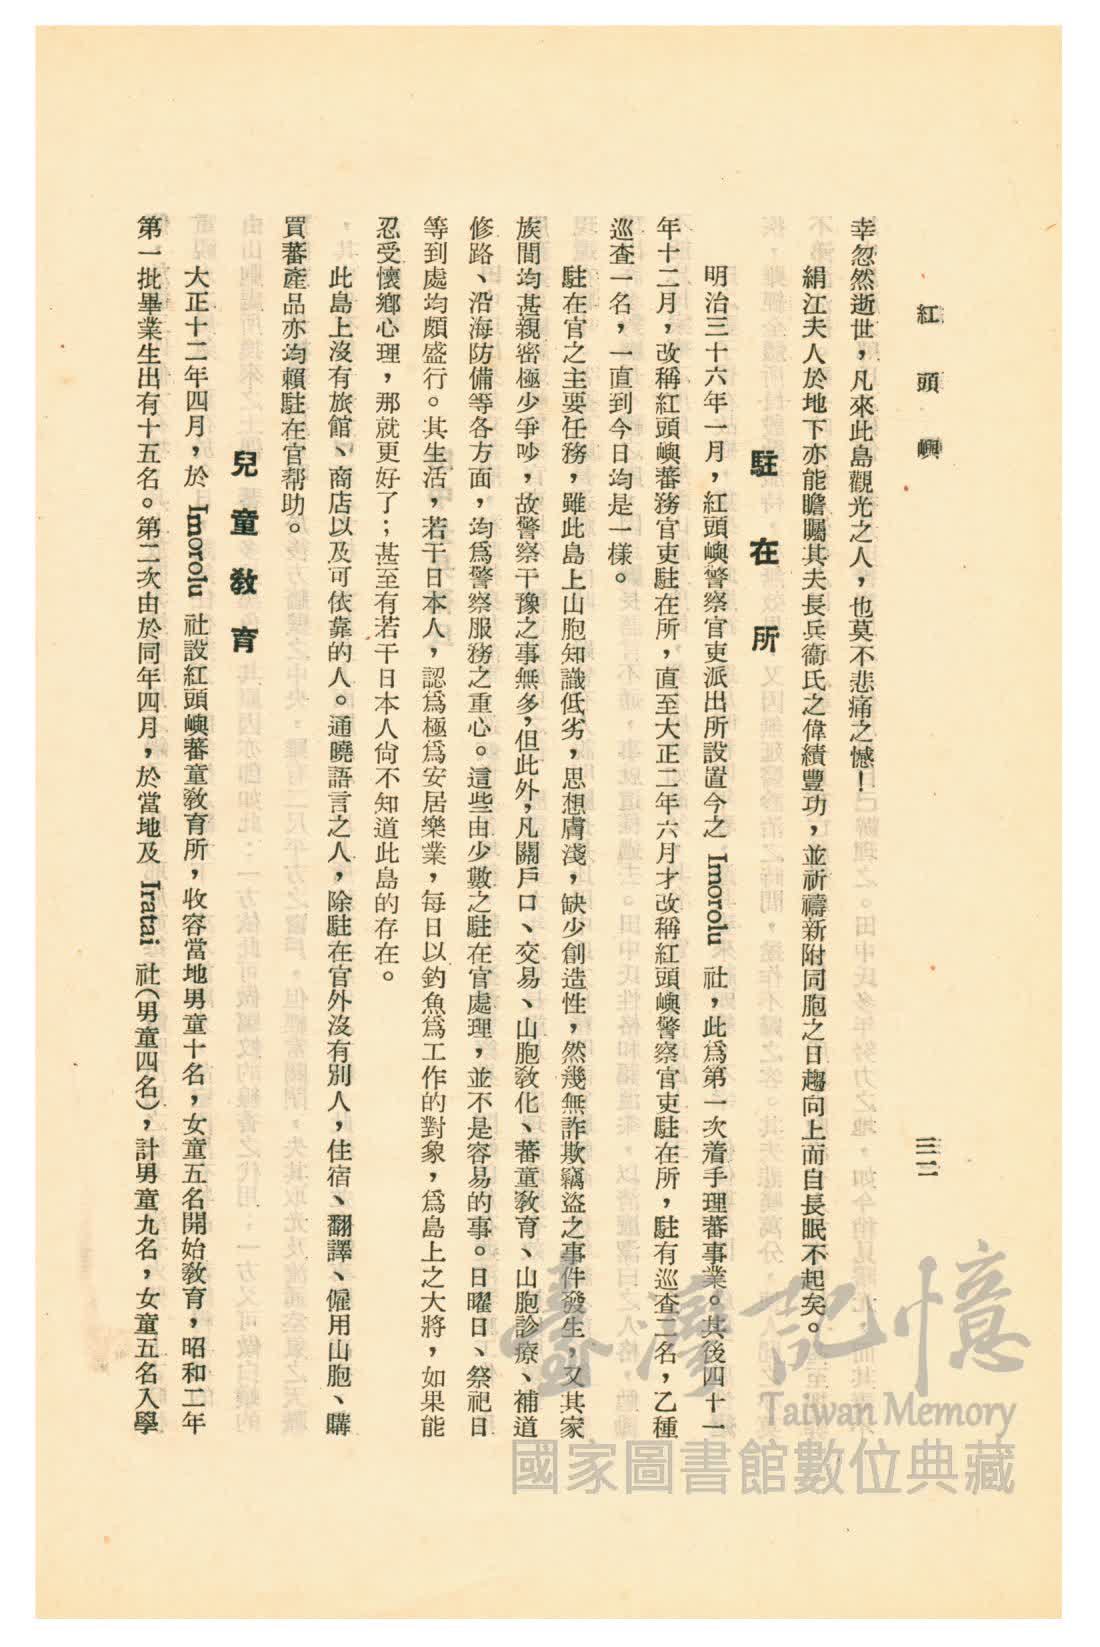 紅頭嶼
三二
幸忽然逝世，凡來此島觀光之人，也莫不悲痛之憾！
絹江夫人於地下亦能瞻矚其夫長兵衞氏之偉績豐功，並祈禱新附同胞之日趨向上而自長眠不起矣。
駐在所
明治三十六年一月，紅頭嶼警察官吏派出所設置今之 Imorolu 社，此爲第一次着手理蕃事業。其後四十一
年十二月，改稱紅頭嶼蕃務官吏駐在所，直至大正二年六月才改稱紅頭嶼警察官吏駐在所，駐有巡查二名，乙種
巡查一名，一直到今日均是一樣。
駐在官之主要任務，雖此島上山胞知識低劣，思想膚淺，缺少創造性，然幾無詐欺竊盜之事件發生，又其家
族間均甚親密極少爭吵，故警察干豫之事無多，但此外，凡關戶口、交易、山胞敎化、蕃童敎育、山胞診療、補道
修路、沿海防備等各方面，均爲警察服務之重心。這些由少數之駐在官處理，並不是容易的事。日曜日、祭祀日
等到處均頗盛行。其生活，若干日本人，認爲極爲安居樂業，每日以釣魚爲工作的對象，爲島上之大將，如果能
忍受懷鄉心理，那就更好了；甚至有若干日本人尙不知道此島的存在。
此島上沒有旅館、商店以及可依靠的人。通曉語言之人，除駐在官外沒有別人，住宿、翻譯、僱用山胞、購
買蕃產品亦均賴駐在官帮助。
兒童敎育
大正十二年四月，於 Imorolu 社設紅頭嶼蕃童敎育所，收容當地男童十名，女童五名開始敎育，昭和二年
第一批畢業生出有十五名。第二次由於同年四月，於當地及 Iratai 社（男童四名），計男童九名，女童五名入學
臺灣記憶
Taiwan Memory
國家圖書館數位典藏